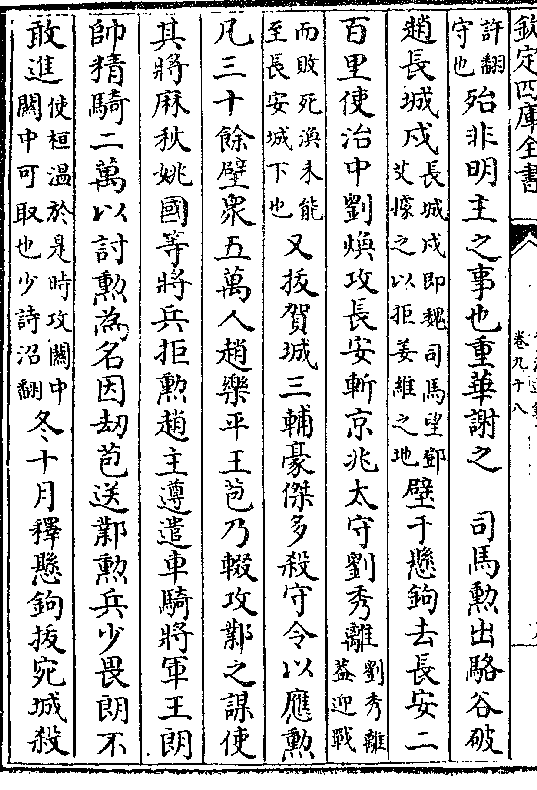 欽定四庫全書
卷九十八
許翻
守也 殆非明主之事也重華謝之 司馬勲出駱谷破
趙長城戍 長城戍即魏司馬望鄧
艾據之以拒姜維之地 壁于懸鉤去長安二
百里使治中劉煥攻長安斬京兆太守劉秀離 劉秀離
葢迎戰
而敗死渙未能
至長安城下也 又拔賀城三輔豪傑多殺守令以應勲
凡三十餘壁衆五萬人趙樂平王苞乃輟攻鄴之謀使
其將麻秋姚國等將兵拒勲趙主遵遣車騎將軍王朗
帥精騎二萬以討勲為名因劫苞送鄴勲兵少畏朗不
敢進 使桓温於是時攻關中
關中可取也少詩沼翻 冬十月釋懸鉤拔宛城殺